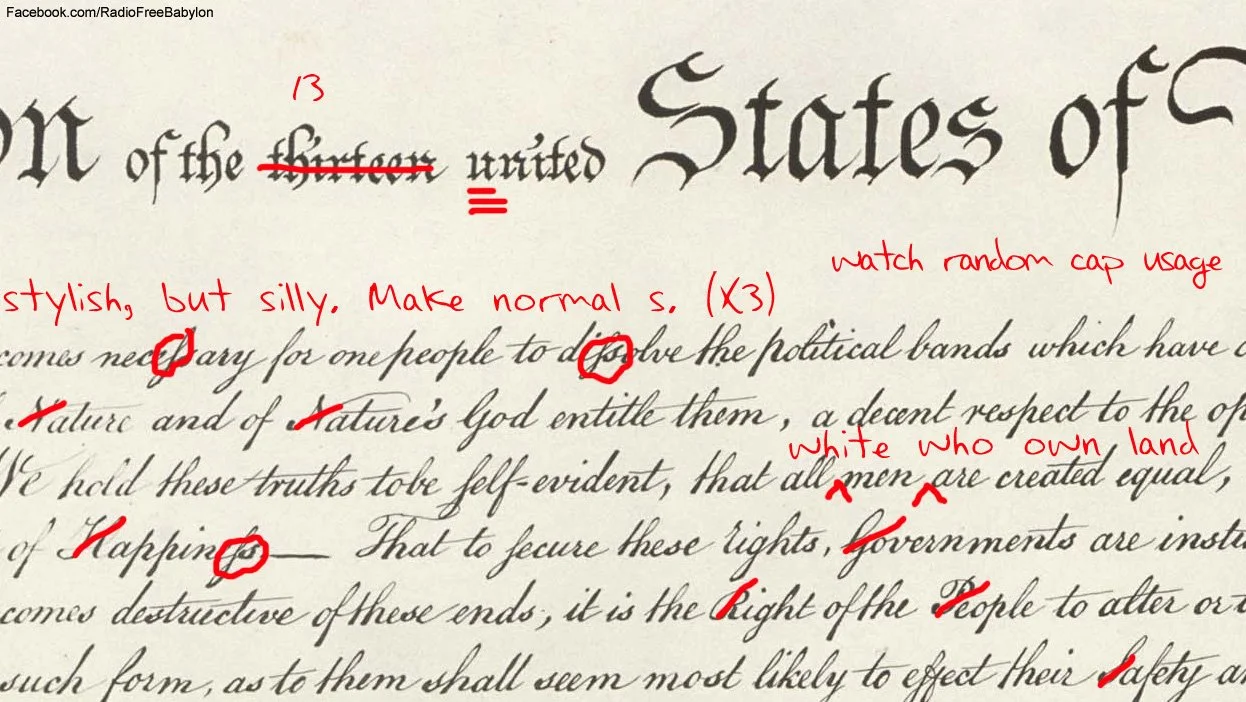 Facebook.com/RadioFreeBabylon
13
on of the thirteen united States of
watch random cap usage
stylish, but silly. Make normal s. (x3)
comes neceſsary for one people to diſsolve the political bands which have
Nature and of Nature's God entitle them, a decent respect to the op
white who own land
We hold these truths to be ſelf-evident, that all men are created equal,
of Happineſs — That to ſecure these rights, Governments are instit
comes destructive of these ends, it is the Right of the People to alter or
such form, as to them shall seem most likely to effect their Safety an